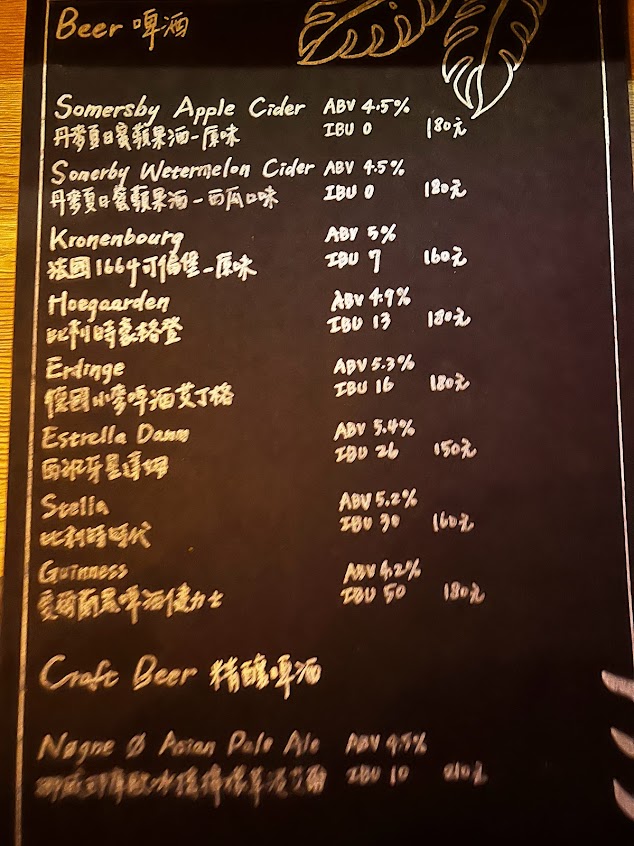 Beer 啤酒
Somersby Apple Cider ABV 4.5%
丹麥夏日蜜蘋果酒-原味 IBU 0 180元
Somerby Wetermelon Cider ABV 4.5%
丹麥夏日蜜蘋果酒-西瓜口味 IBU 0 180元
Kronenbourg ABV 5%
法國1664可倫堡-原味 IBU 7 160元
Hoegaarden ABV 4.9%
比利時豪格登 IBU 13 180元
Erdinge ABV 5.3%
德國小麥啤酒艾丁格 IBU 16 180元
Estrella Damm ABV 5.4%
西班牙星達姆 IBU 26 150元
Stella ABV 5.2%
比利時時代 IBU 30 160元
Guinness ABV 4.2%
愛爾蘭黑啤酒健力士 IBU 50 180元
Craft Beer 精釀啤酒
Nøgne Ø Asian Pale Ale ABV 4.5%
IBU 10 210元